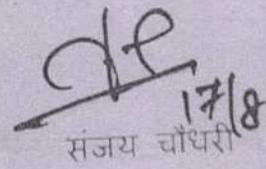 17/8
संजय चौधरी